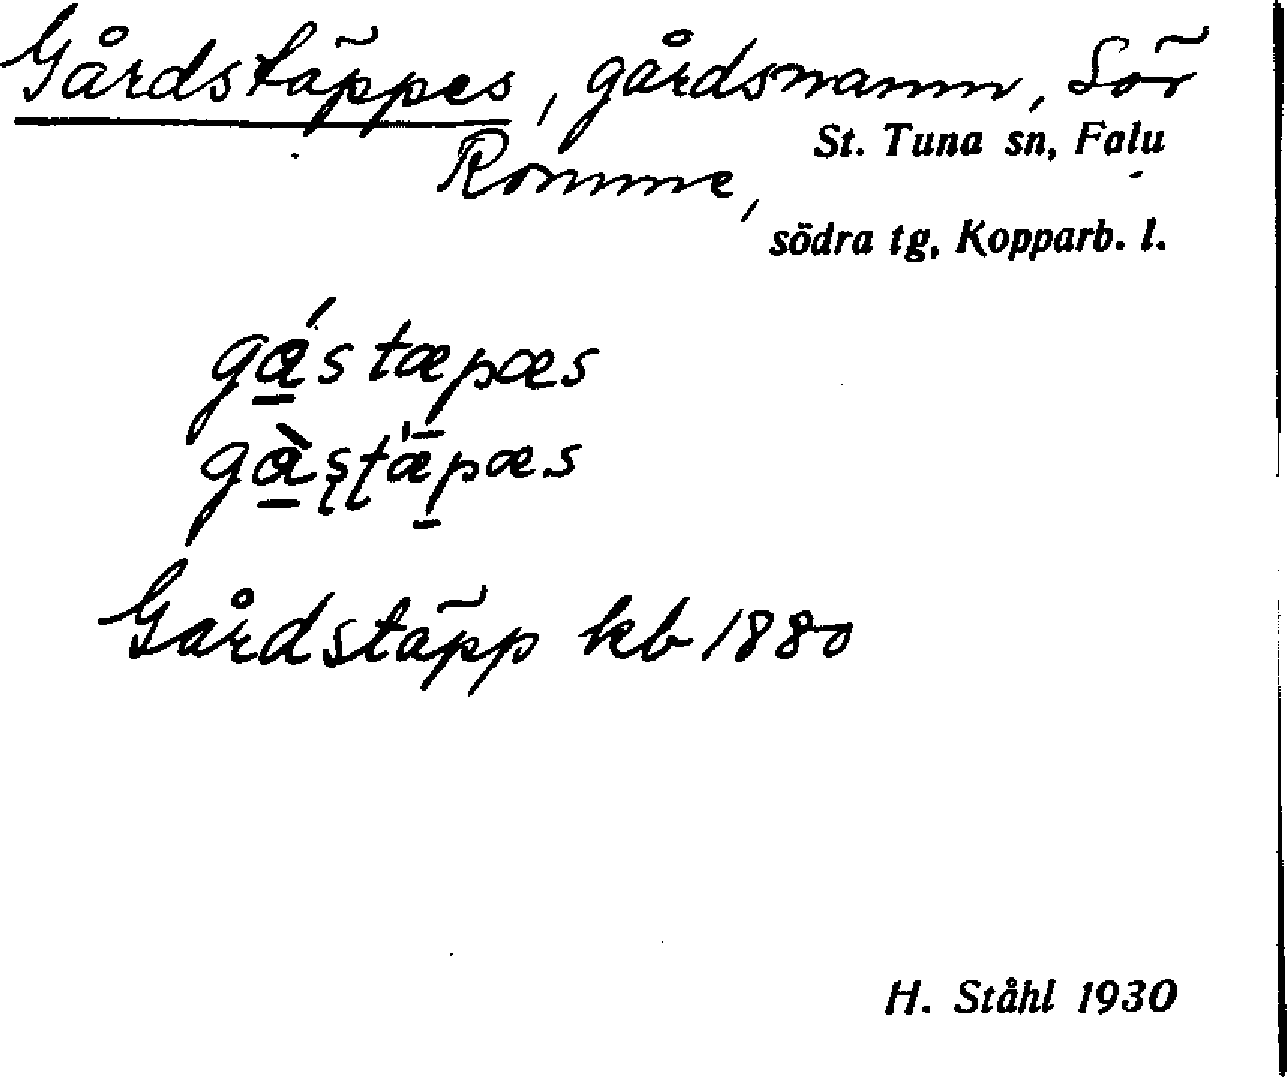 Gårdstäppes, gårdsnamn, Sör
Romme, St. Tuna sn, Falu
södra tg, Kopparb. l.
gá̱stæpæs
gà̱ʂʈæ̀p̱æs
Gårdstäpp kb 1880
H. Ståhl 1930